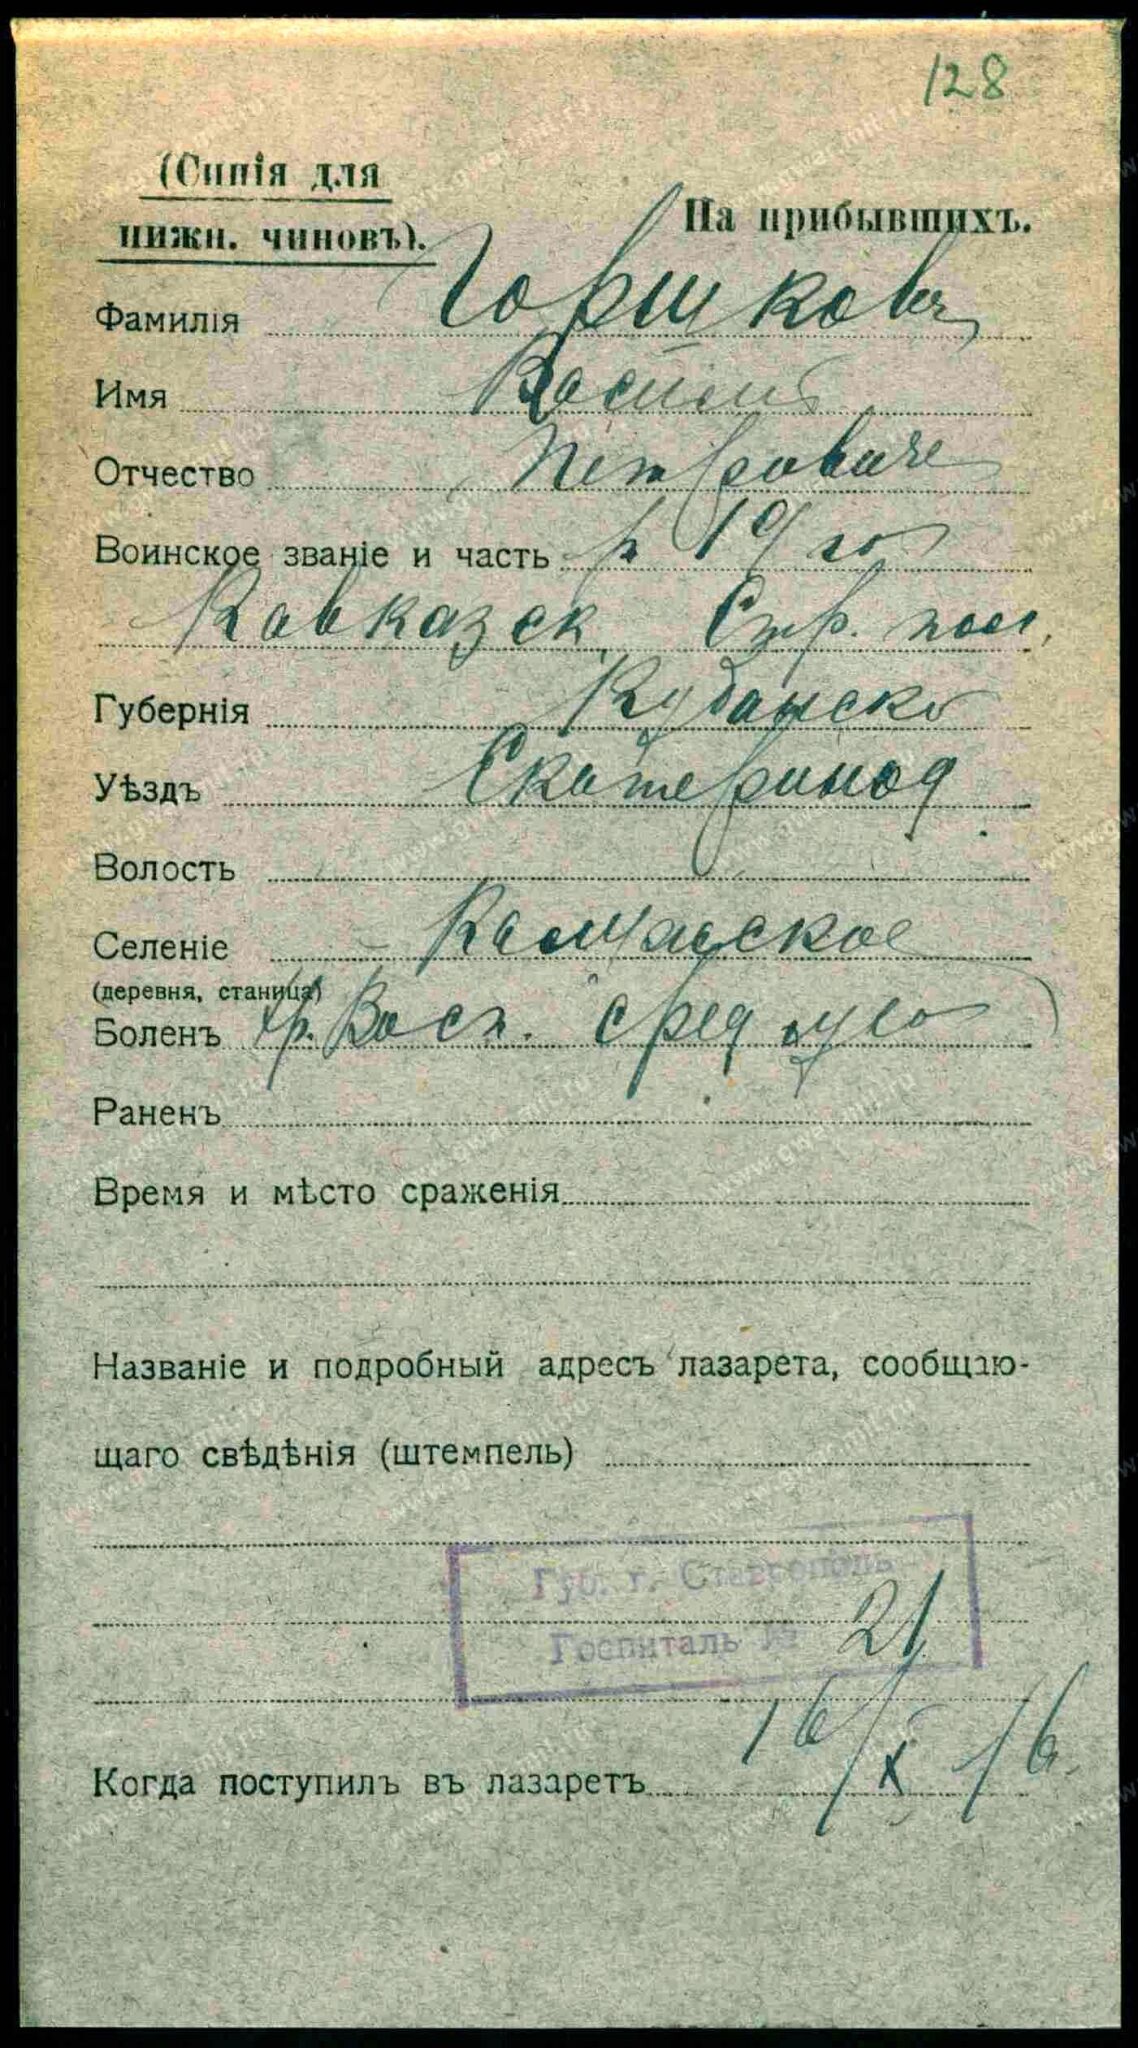 128
(Синія для
нижн. чиновъ).
На прибывшихъ.
Фамилія Горшковъ
Имя Василій
Отчество Петровиче
Воинское званіе и часть р 19 го
Кавказск. Стр. полк.
Губернія Кубанско
Уѣздъ Екатеринод
Волость
Селеніе
(деревня, станица)
Боленъ Хр. Восп. сред уха
Раненъ
Время и мѣсто сраженія
Названіе и подробный адресъ лазарета, сообщаю-
щаго свѣдѣнія (штемпель)
Губ. г. Ставрополь
Госпиталь № 21
Когда поступилъ въ лазаретъ 16/X 16.